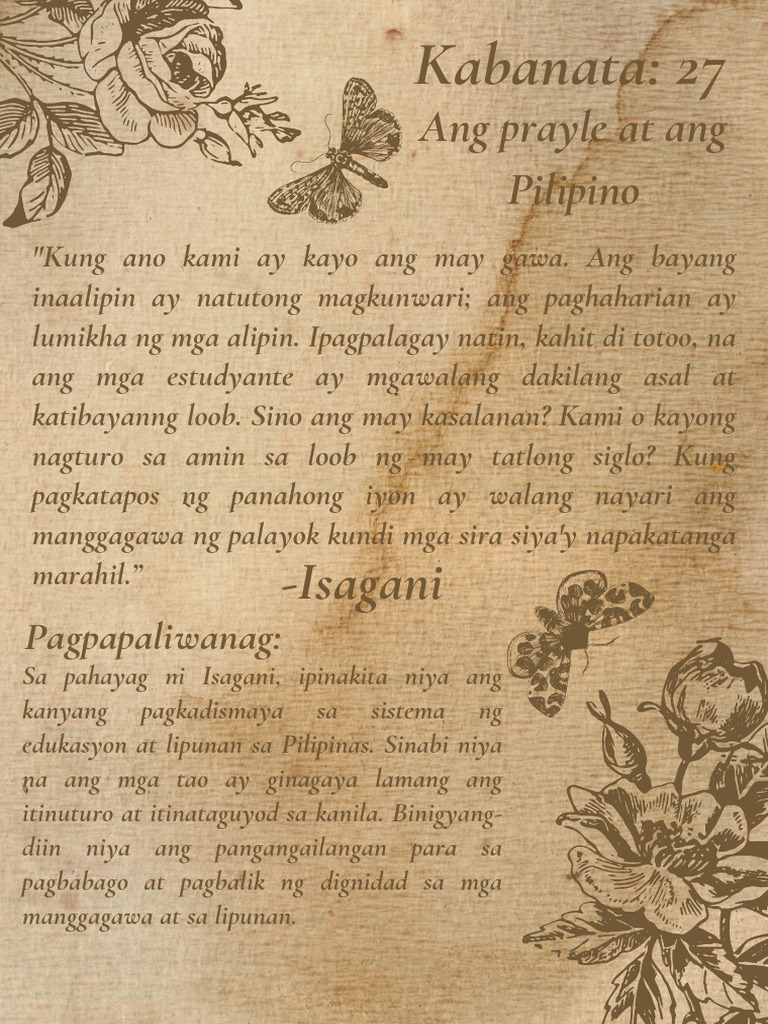 Kabanata: 27
Ang prayle at ang
Pilipino
"Kung ano kami ay kayo ang may gawa. Ang bayang
inaalipin ay natutong magkunwari; ang paghaharian ay
lumikha ng mga alipin. Ipagpalagay natin, kahit di totoo, na
ang mga estudyante ay mgawalang dakilang asal at
katibayanng loob. Sino ang may kasalanan? Kami o kayong
nagturo sa amin sa loob ng may tatlong siglo? Kung
pagkatapos ng panahong iyon ay walang nayari ang
manggagawa ng palayok kundi mga sira siya'y napakatanga
marahil.”
-Isagani
Pagpapaliwanag:
Sa pahayag ni Isagani, ipinakita niya ang
kanyang pagkadismaya sa sistema ng
edukasyon at lipunan sa Pilipinas. Sinabi niya
na ang mga tao ay ginagaya lamang ang
itinuturo at itinataguyod sa kanila. Binigyang-
diin niya ang pangangailangan para sa
pagbabago at pagbalik ng dignidad sa mga
manggagawa at sa lipunan.